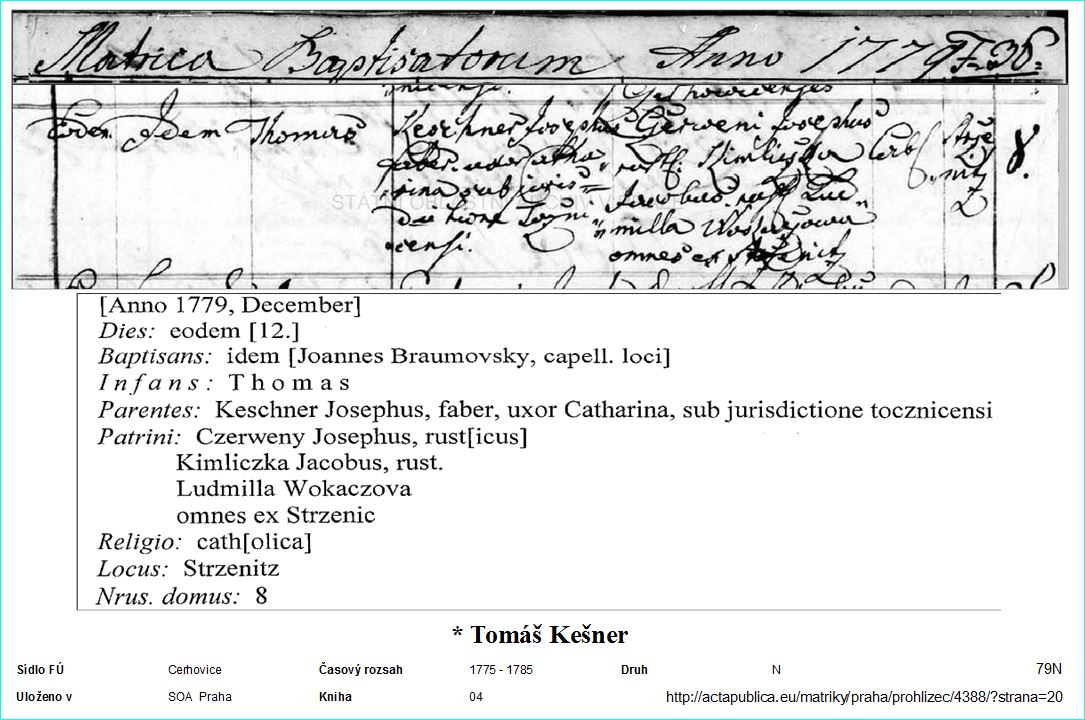 Matrica Baptisatorum Anno 1779 F. 36.
Eodem Idem Thomas Keschner Josephus Czerweni Josephus
faber uxor Catha rust. Kimliczka Cath.
rina sub juris= Jacobus rust. Lud=
dictione Toczni= milla Wokaczowa
censi. omnes ex Strzenitz
Strze
nitz
8.
STÁTNÍ OBLASTNÍ ARCHIV V
[Anno 1779, December]
Dies: eodem [12.]
Baptisans: idem [Joannes Braumovsky, capell. loci]
Infans: Thomas
Parentes: Keschner Josephus, faber, uxor Catharina, sub jurisdictione tocznicensi
Patrini: Czerweny Josephus, rust[icus]
Kimliczka Jacobus, rust.
Ludmilla Wokaczova
omnes ex Strzenic
Religio: cath[olica]
Locus: Strzenitz
Nrus. domus: 8
* Tomáš Kešner
Sídlo FÚ Cerhovice Časový rozsah 1775 - 1785 Druh N 79N
Uloženo v SOA Praha Kniha 04 http://actapublica.eu/matriky/praha/prohlizec/4388/?strana=20